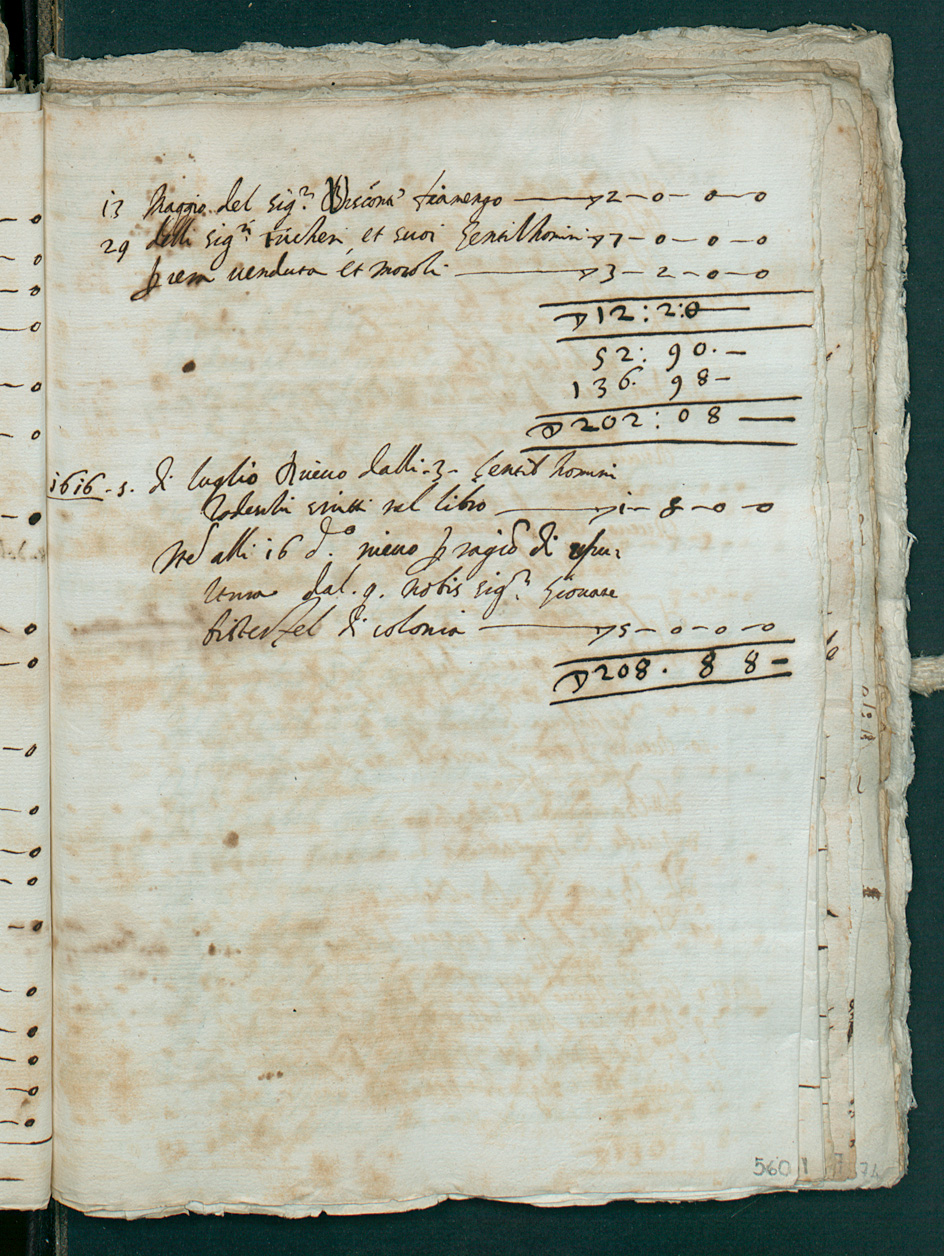 13 Maggio del sig.r Viscon.e fiamengo — D 2 – 0 – 0 – 0
29 delli sig.ri Fucheri et suoi Gentilhomini D 7 – 0 – 0 – 0
venduta et — D 3 – 2 – 0 – 0
D 12 : 2 : 0 —
52 : 90 . –
136 . 98 –
D 202 : 08 —
1616 – 5 . di luglio Riceuo dalli – 3 – Gentilhomini
Todeschi scritti nel libro — D 1 – 8 – 0 – 0
alli 16 d.o riceuo p di
dal . q . nobis sig.r Giouane
di colonia — D 5 – 0 – 0 – 0
D 208 . 8 8 –
560